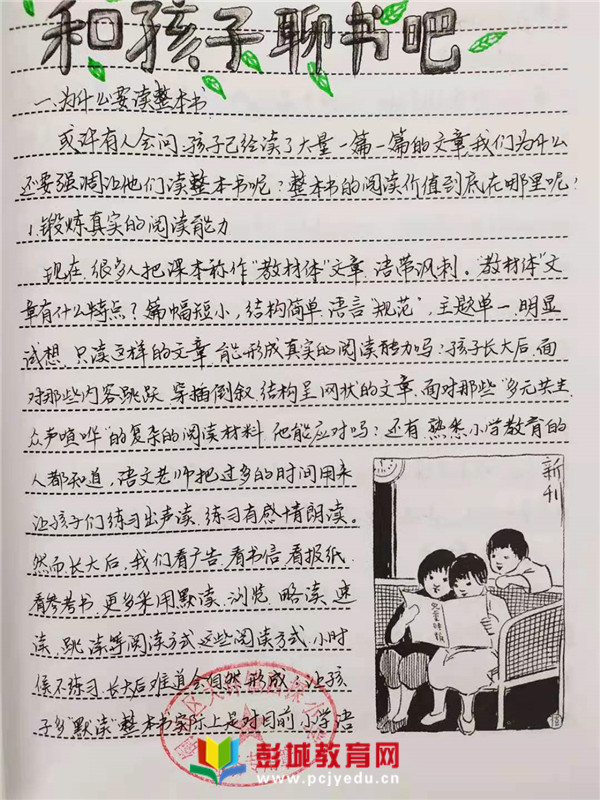 和孩子聊书吧
一.为什么要读整本书
或许有人会问:孩子已经读了大量一篇一篇的文章,我们为什么
还要强调让他们读整本书呢?整本书的阅读价值到底在哪里呢?
1.锻炼真实的阅读能力
现在,很多人把课本称作"教材体"文章,语带讽刺。"教材体"文
章有什么特点?篇幅短小,结构简单,语言"规范",主题单一、明显
试想,只读这样的文章,能形成真实的阅读能力吗?孩子长大后,面
对那些内容跳跃、穿插倒叙、结构呈网状的文章,面对那些"多元共生,
众声喧哗"的复杂的阅读材料,他能应对吗?还有,熟悉小学教育的
人都知道,语文老师把过多的时间用来
让孩子们练习出声读、练习有感情朗读。
然而长大后,我们看广告、看书信、看报纸、
看参考书,更多采用默读、浏览、略读、速
读、跳读等阅读方式,这些阅读方式,小时
候不练习,长大后难道会自然形成?让孩
子多"默读"整本书实际上是对目前小学语
新刊
儿童时报
彭城教育网
www.pcjyedu.cn